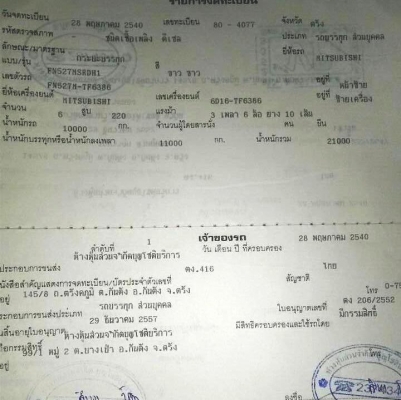 รายการจดทะเบียน
วันจดทะเบียน 28 พฤษภาคม 2540 เลขทะเบียน 80 - 4077 จังหวัด ตรัง
ชนิดเชื้อเพลิง ดีเซล ประเภท รถยรรทุก ส่วนบุคคล
ลักษณะ/มาตรฐาน กระบะบรรทุก ยี่ห้อรถ MITSUBISHI
แบบ/รุ่น FN527NSRDH1 สี ขาว ขาว
เลขตัวรถ FN527N-TF6386 อยู่ที่
ยี่ห้อเครื่องยนต์ MITSUBISHI เลขเครื่องยนต์ 6D16-TF6386 อยู่ที่ ซ้ายเครื่อง
จำนวน 6 สูบ 220 แรงม้า 3 เพลา 6 ล้อ ยาง 10 เส้น
น้ำหนักรถ 10000 กก. จำนวนผู้โดยสารนั่ง คน ยืน
น้ำหนักบรรทุกหรือน้ำหนักลงเพลา 11000 กก. น้ำหนักรวม 21000
เจ้าของรถ
ลำดับที่ 1 วัน เดือน ปี ที่ครอบครอง 28 พฤษภาคม 2540
ประกอบการขนส่ง
ตง.416 สัญชาติ ไทย
หนังสือสำคัญแสดงการจดทะเบียน/บัตรประจำตัวเลขที่
อยู่ 145/8 ถ.ตรังคภูมิ ต.กันตัง อ.กันตัง จ.ตรัง
ประกอบการขนส่งประเภท รถบรรทุก ส่วนบุคคล ใบอนุญาตเลขที่ ตง 206/2552
สิ้นอายุใบอนุญาต 29 ธันวาคม 2557 มีสิทธิครอบครองและใช้รถโดย มีกรรมสิทธิ์
ถือกรรมสิทธิ์
อยู่ 99/1 หมู่ 2 ต.บางเป้า อ.กันตัง จ.ตรัง
ลงชื่อ